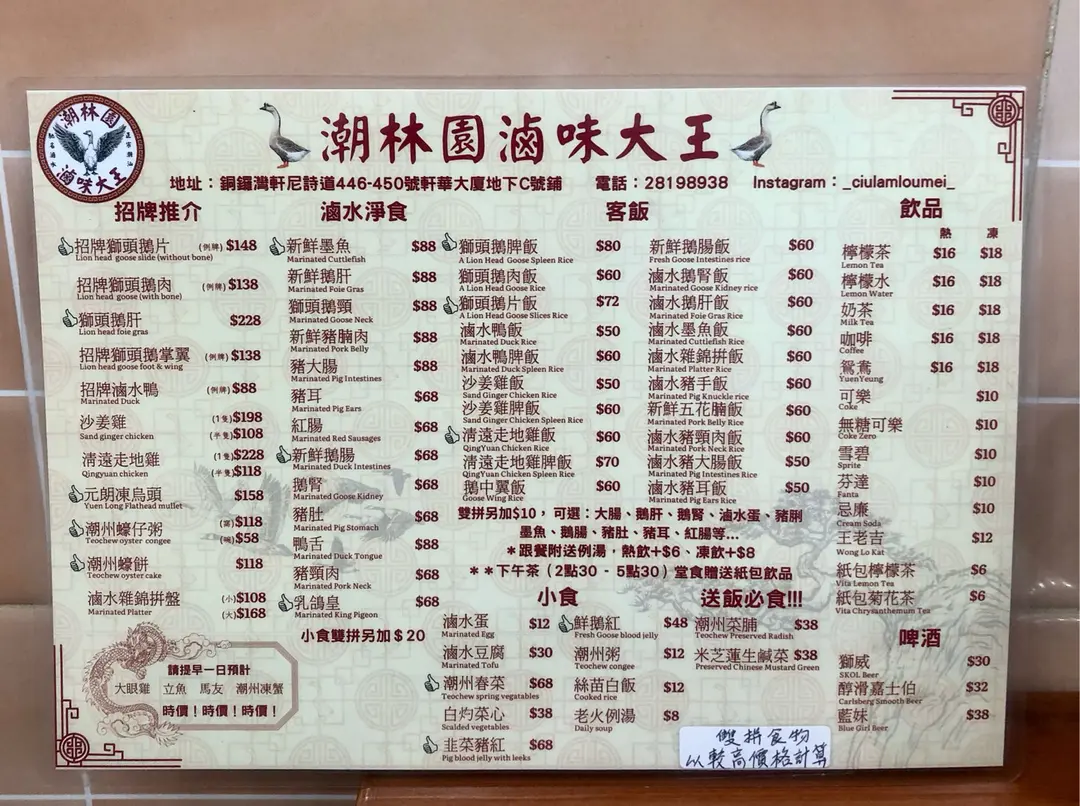 潮林園
滷味大王
潮林園滷味大王
地址：銅鑼灣軒尼詩道446-450號軒華大廈地下C號鋪 電話：28198938 Instagram：_ciulamloumei_
招牌推介
招牌獅頭鵝片 (例牌) $148
Lion head goose slide (without bone)
招牌獅頭鵝肉 (例牌) $138
Lion head goose (with bone)
獅頭鵝肝 $228
Lion head foie gras
招牌獅頭鵝掌翼 (例牌) $138
Lion head goose foot & wing
招牌滷水鴨 (例牌) $88
Marinated Duck
沙姜雞 (1隻) $198
Sand ginger chicken (半隻) $108
清遠走地雞 (1隻) $228
Qingyuan chicken (半隻) $118
元朗凍烏頭 $158
Yuen Long Flathead mullet
潮州蠔仔粥 (窩) $118
Teochew oyster congee (碗) $58
潮州蠔餅 $118
Teochew oyster cake
滷水雜錦拼盤 (小) $108
Marinated Platter (大) $168
請提早一日預計
大眼雞 立魚 馬友 潮州凍蟹
時價！時價！時價！
滷水淨食
新鮮墨魚 $88
Marinated Cuttlefish
新鮮鵝肝 $88
Marinated Foie Gras
獅頭鵝頸 $88
Marinated Goose Neck
新鮮豬腩肉 $88
Marinated Pork Belly
豬大腸 $88
Marinated Pig Intestines
豬耳 $68
Marinated Pig Ears
紅腸 $68
Marinated Red Sausages
新鮮鵝腸 $68
Marinated Duck Intestines
鵝腎 $68
Marinated Goose Kidney
豬肚 $68
Marinated Pig Stomach
鴨舌 $88
Marinated Duck Tongue
豬頸肉 $68
Marinated Pork Neck
乳鴿皇 $68
Marinated King Pigeon
小食雙拼另加＄20
客飯
獅頭鵝脾飯 $80
A Lion Head Goose Spleen Rice
獅頭鵝肉飯 $60
A Lion Head Goose Rice
獅頭鵝片飯 $72
A Lion Head Goose Slices Rice
滷水鴨飯 $50
Marinated Duck Rice
滷水鴨脾飯 $60
Marinated Duck Spleen Rice
沙姜雞飯 $50
Sand Ginger Chicken Rice
沙姜雞脾飯 $60
Sand Ginger Chicken Spleen Rice
清遠走地雞飯 $60
QingYuan Chicken Rice
清遠走地雞脾飯 $70
QingYuan Chicken Spleen Rice
鵝中翼飯 $60
Goose Wing Rice
新鮮鵝腸飯 $60
Fresh Goose Intestines rice
滷水鵝腎飯 $60
Marinated Goose Kidney rice
滷水鵝肝飯 $60
Marinated Foie Gras Rice
滷水墨魚飯 $60
Marinated Cuttlefish Rice
滷水雜錦拼飯 $60
Marinated Platter Rice
滷水豬手飯 $60
Marinated Pig Knuckle rice
新鮮五花腩飯 $60
Marinated Pork Belly Rice
滷水豬頸肉飯 $60
Marinated Pork Neck Rice
滷水豬大腸飯 $50
Marinated Pig Intestines Rice
滷水豬耳飯 $50
Marinated Pig Ears Rice
雙拼另加$10，可選：大腸、鵝肝、鵝腎、滷水蛋、豬脷
墨魚、鵝腸、豬肚、豬耳、紅腸等...
＊跟餐附送例湯，熱飲+$6、凍飲+$8
＊＊下午茶（2點30 - 5點30）堂食贈送紙包飲品
小食
滷水蛋 $12
Marinated Egg
滷水豆腐 $30
Marinated Tofu
潮州春菜 $68
Teochew spring vegatables
白灼菜心 $38
Scalded vegetables
韭菜豬紅 $68
Pig blood jelly with leeks
鮮鵝紅 $48
Fresh Goose blood jelly
潮州粥 $12
Teochew congee
絲苗白飯 $12
Cooked rice
老火例湯 $8
Daily soup
送飯必食!!!
潮州菜脯 $38
Teochew Preserved Radish
米芝蓮生鹹菜 $38
Preserved Chinese Mustard Green
雙拼食物
以較高價格計算
飲品
熱 凍
檸檬茶 $16 $18
Lemon Tea
檸檬水 $16 $18
Lemon Water
奶茶 $16 $18
Milk Tea
咖啡 $16 $18
Coffee
鴛鴦 $16 $18
YuenYeung
可樂 $10
Coke
無糖可樂 $10
Coke Zero
雪碧 $10
Sprite
芬達 $10
Fanta
忌廉 $10
Cream Soda
王老吉 $12
Wong Lo Kat
紙包檸檬茶 $6
Vita Lemon Tea
紙包菊花茶 $6
Vita Chrysanthemum Tea
啤酒
獅威 $30
SKOL Beer
醇滑嘉士伯 $32
Carlsberg Smooth Beer
藍妹 $38
Blue Girl Beer